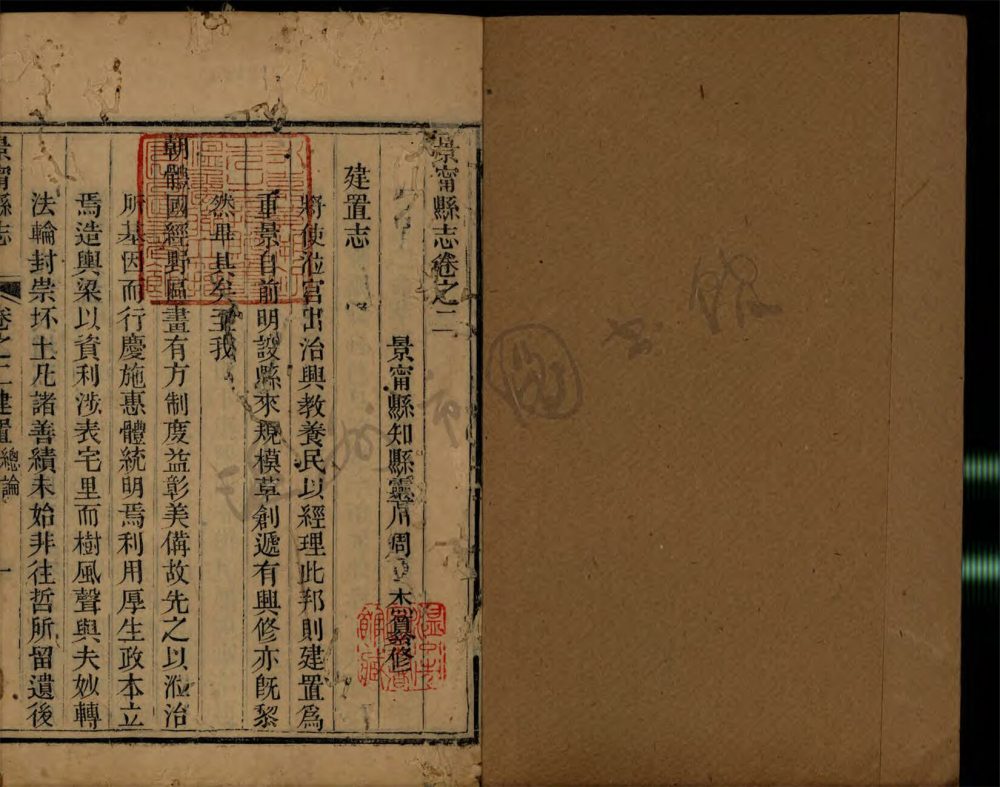 景甯縣志卷之二
景甯縣知縣靈川周杰纂修
建置志
將使涖官出治興教養民以經理此邦則建置爲
重景自前明設縣來規模草創遞有興修亦旣黎
然畢具矣至我
朝體國經野區畫有方制度益彰美備故先之以涖治
所基因而行慶施惠體統明焉利用厚生政本立
焉造輿梁以資利涉表宅里而樹風聲與夫妙轉
法輪封崇坏土凡諸善績未始非往哲所留遺後
景甯縣志 卷之二建置 總論 一
溫州市圖書館藏
溫州市圖書館